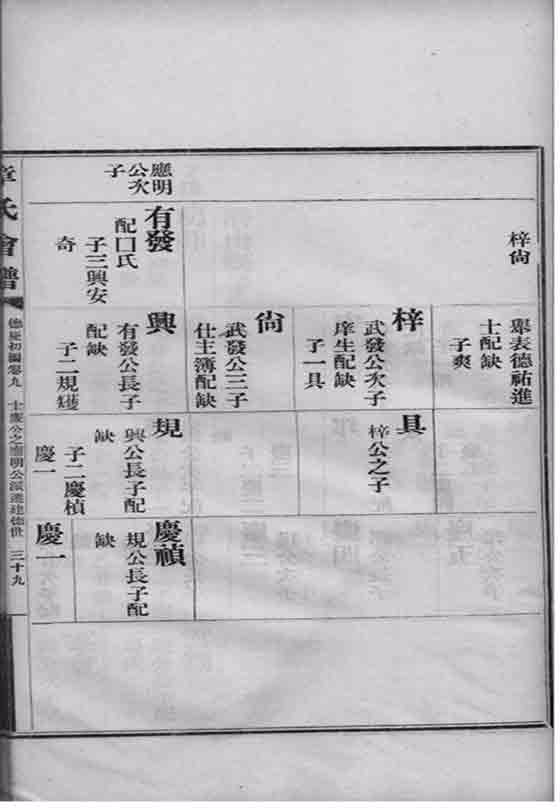 梓尙
應明
公次
子
有發
配口氏
子三興安
奇
舉表德祐進
士配缺
子爽
梓
武發公次子
庠生配缺
子一具
尙
武發公三子
仕主簿配缺
興
有發公長子
配缺
子二規
具
梓公之子
規
興公長子配
缺
子二慶楨
慶一
慶禎
規公長子配
缺
慶一
章氏會譜
德慶初編卷九
三十九